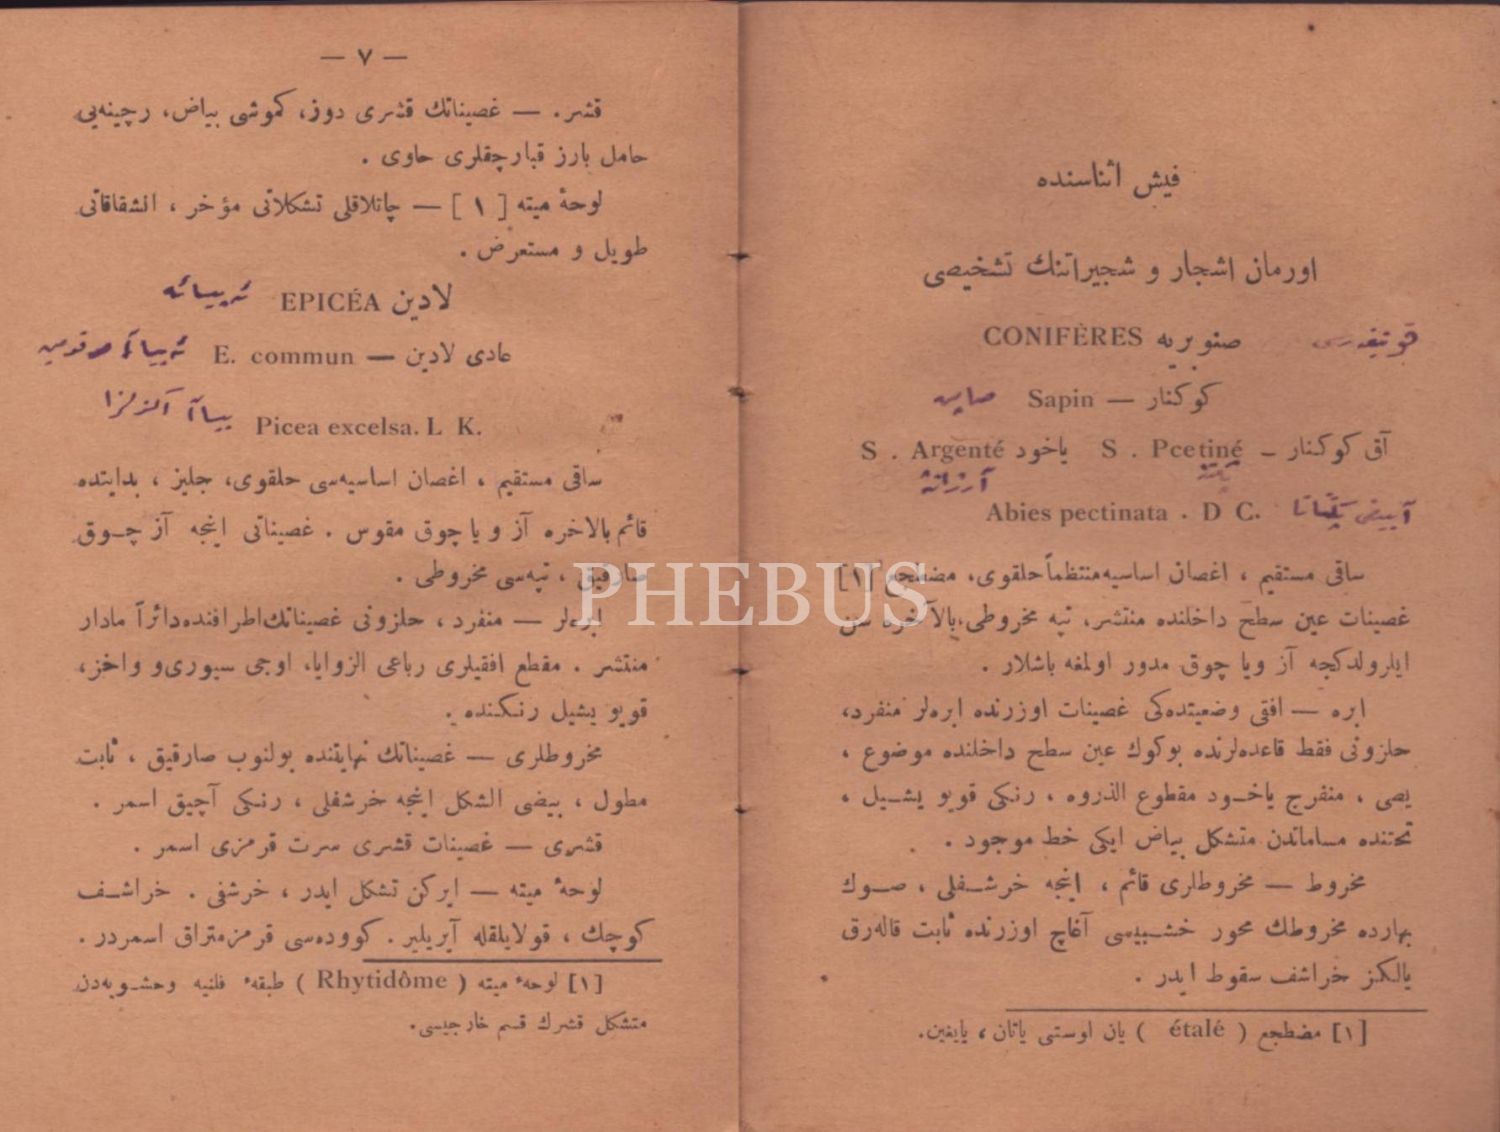 فيش اثناسنده
اورمان اشجار و شجيراتنك تشخيصى
صنوبريه CONIFÈRES قونيفه‌رس
كوكنار — Sapin صاپن
آق كوكنار — S . Pcetiné ياخود S . Argenté
Abies pectinata . D C.
ساقى مستقيم ، اغصان اساسيه منتظماً حلقوى، مضطجع [١]
غصينات عين سطح داخلنده منتشر، تپه مخروطى، بالآخره سن
ايلرولدكجه آز ويا چوق مدور اولمغه باشلار .
ابره — افقى وضعيتده‌كى غصينات اوزرنده ابره‌لر منفرد،
حلزونى فقط قاعده‌لرنده بوكوك عين سطح داخلنده موضوع ،
يصى ، منفرج ياخود مقطوع الذروه ، رنكى قويو يشيل ،
تحتنده مساماتدن متشكل بياض ايكى خط موجود .
مخروط — مخروطلرى قائم ، اينجه خرشفلى ، صوك
بهارده مخروطك محور خشبيسى آغاچ اوزرنده ثابت قاله‌رق
يالكز خراشف سقوط ايدر .
[١] مضطجع ( étalé ) يان اوستى ياتان ، يايغين.
— ٧ —
قشر. — غصيناتك قشرى دوز، كموشى بياض، رچينه‌يى
حامل بارز قبارجقلرى حاوى .
لوحهٔ ميته [ ١ ] — چاتلاقلى تشكلاتى مؤخر ، انشقاقاتى
طويل و مستعرض .
لادين EPICÉA ئه‌پيسائه
عادى لادين — E. commun
Picea excelsa. L K.
ساقى مستقيم ، اغصان اساسيه‌سى حلقوى، جليز ، بدايتده
قائم بالاخره آز و يا چوق مقوس . غصيناتى اينجه آز چوق
صارقيق ، تپه‌سى مخروطى .
ابره‌لر — منفرد ، حلزونى غصيناتك اطرافنده دائراً مادار
منتشر . مقطع افقيلرى رباعى الزوايا، اوجى سيورى و واخز،
قويو يشيل رنكنده .
مخروطلرى — غصيناتك نهايتنده بولنوب صارقيق ، ثابت
مطول ، بيضى الشكل اينجه خرشفلى ، رنكى آچيق اسمر .
قشرى — غصينات قشرى سرت قرمزى اسمر .
لوحهٔ ميته — ايركن تشكل ايدر ، خرشفى . خراشف
كوچك ، قولايلقله آيريلير . كووده‌سى قرمزمتراق اسمردر .
[١] لوحهٔ ميته ( Rhytidôme ) طبقهٔ فلنيه وحشويه‌دن
متشكل قشرك قسم خارجيسى.
PHEBUS